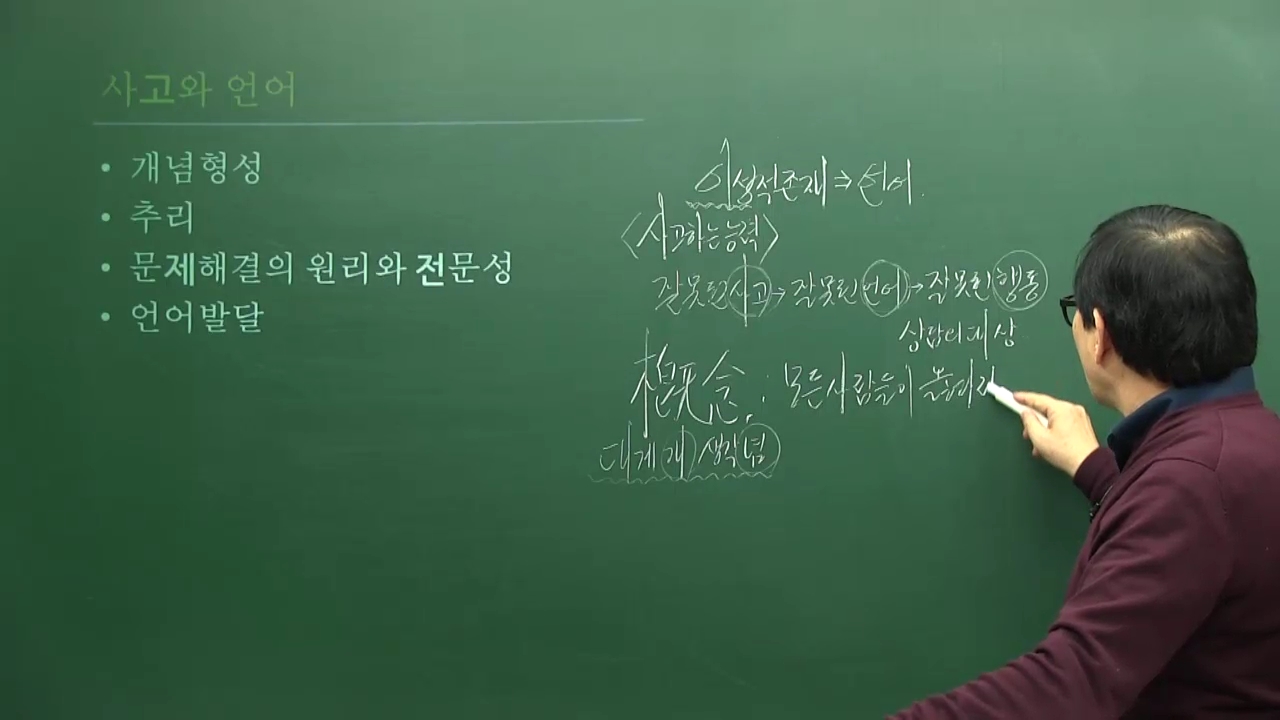 사고와 언어
• 개념형성
• 추리
• 문제해결의 원리와 전문성
• 언어발달
이성적존재 ⇒ 언어.
〈사고하는능력〉
잘못된사고→잘못된언어→잘못된행동
상담의대상
槪念: 모든사람들이
대게개 생각념